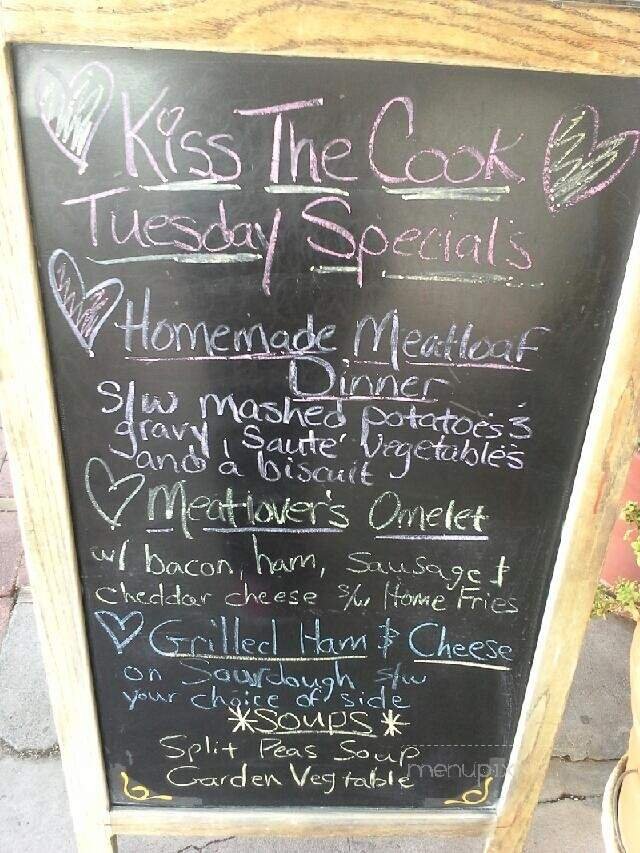 Kiss The Cook
Tuesday Specials
Homemade Meatloaf
Dinner
s/w mashed potatoes &
gravy, Saute' Vegetables
and a biscuit
Meatlover's Omelet
w/ bacon, ham, Sausage &
cheddar cheese s/w Home Fries
Grilled Ham & Cheese
on Sourdough s/w
your choice of side
*SOUPS*
Split Peas Soup
Garden Vegtable
menupix